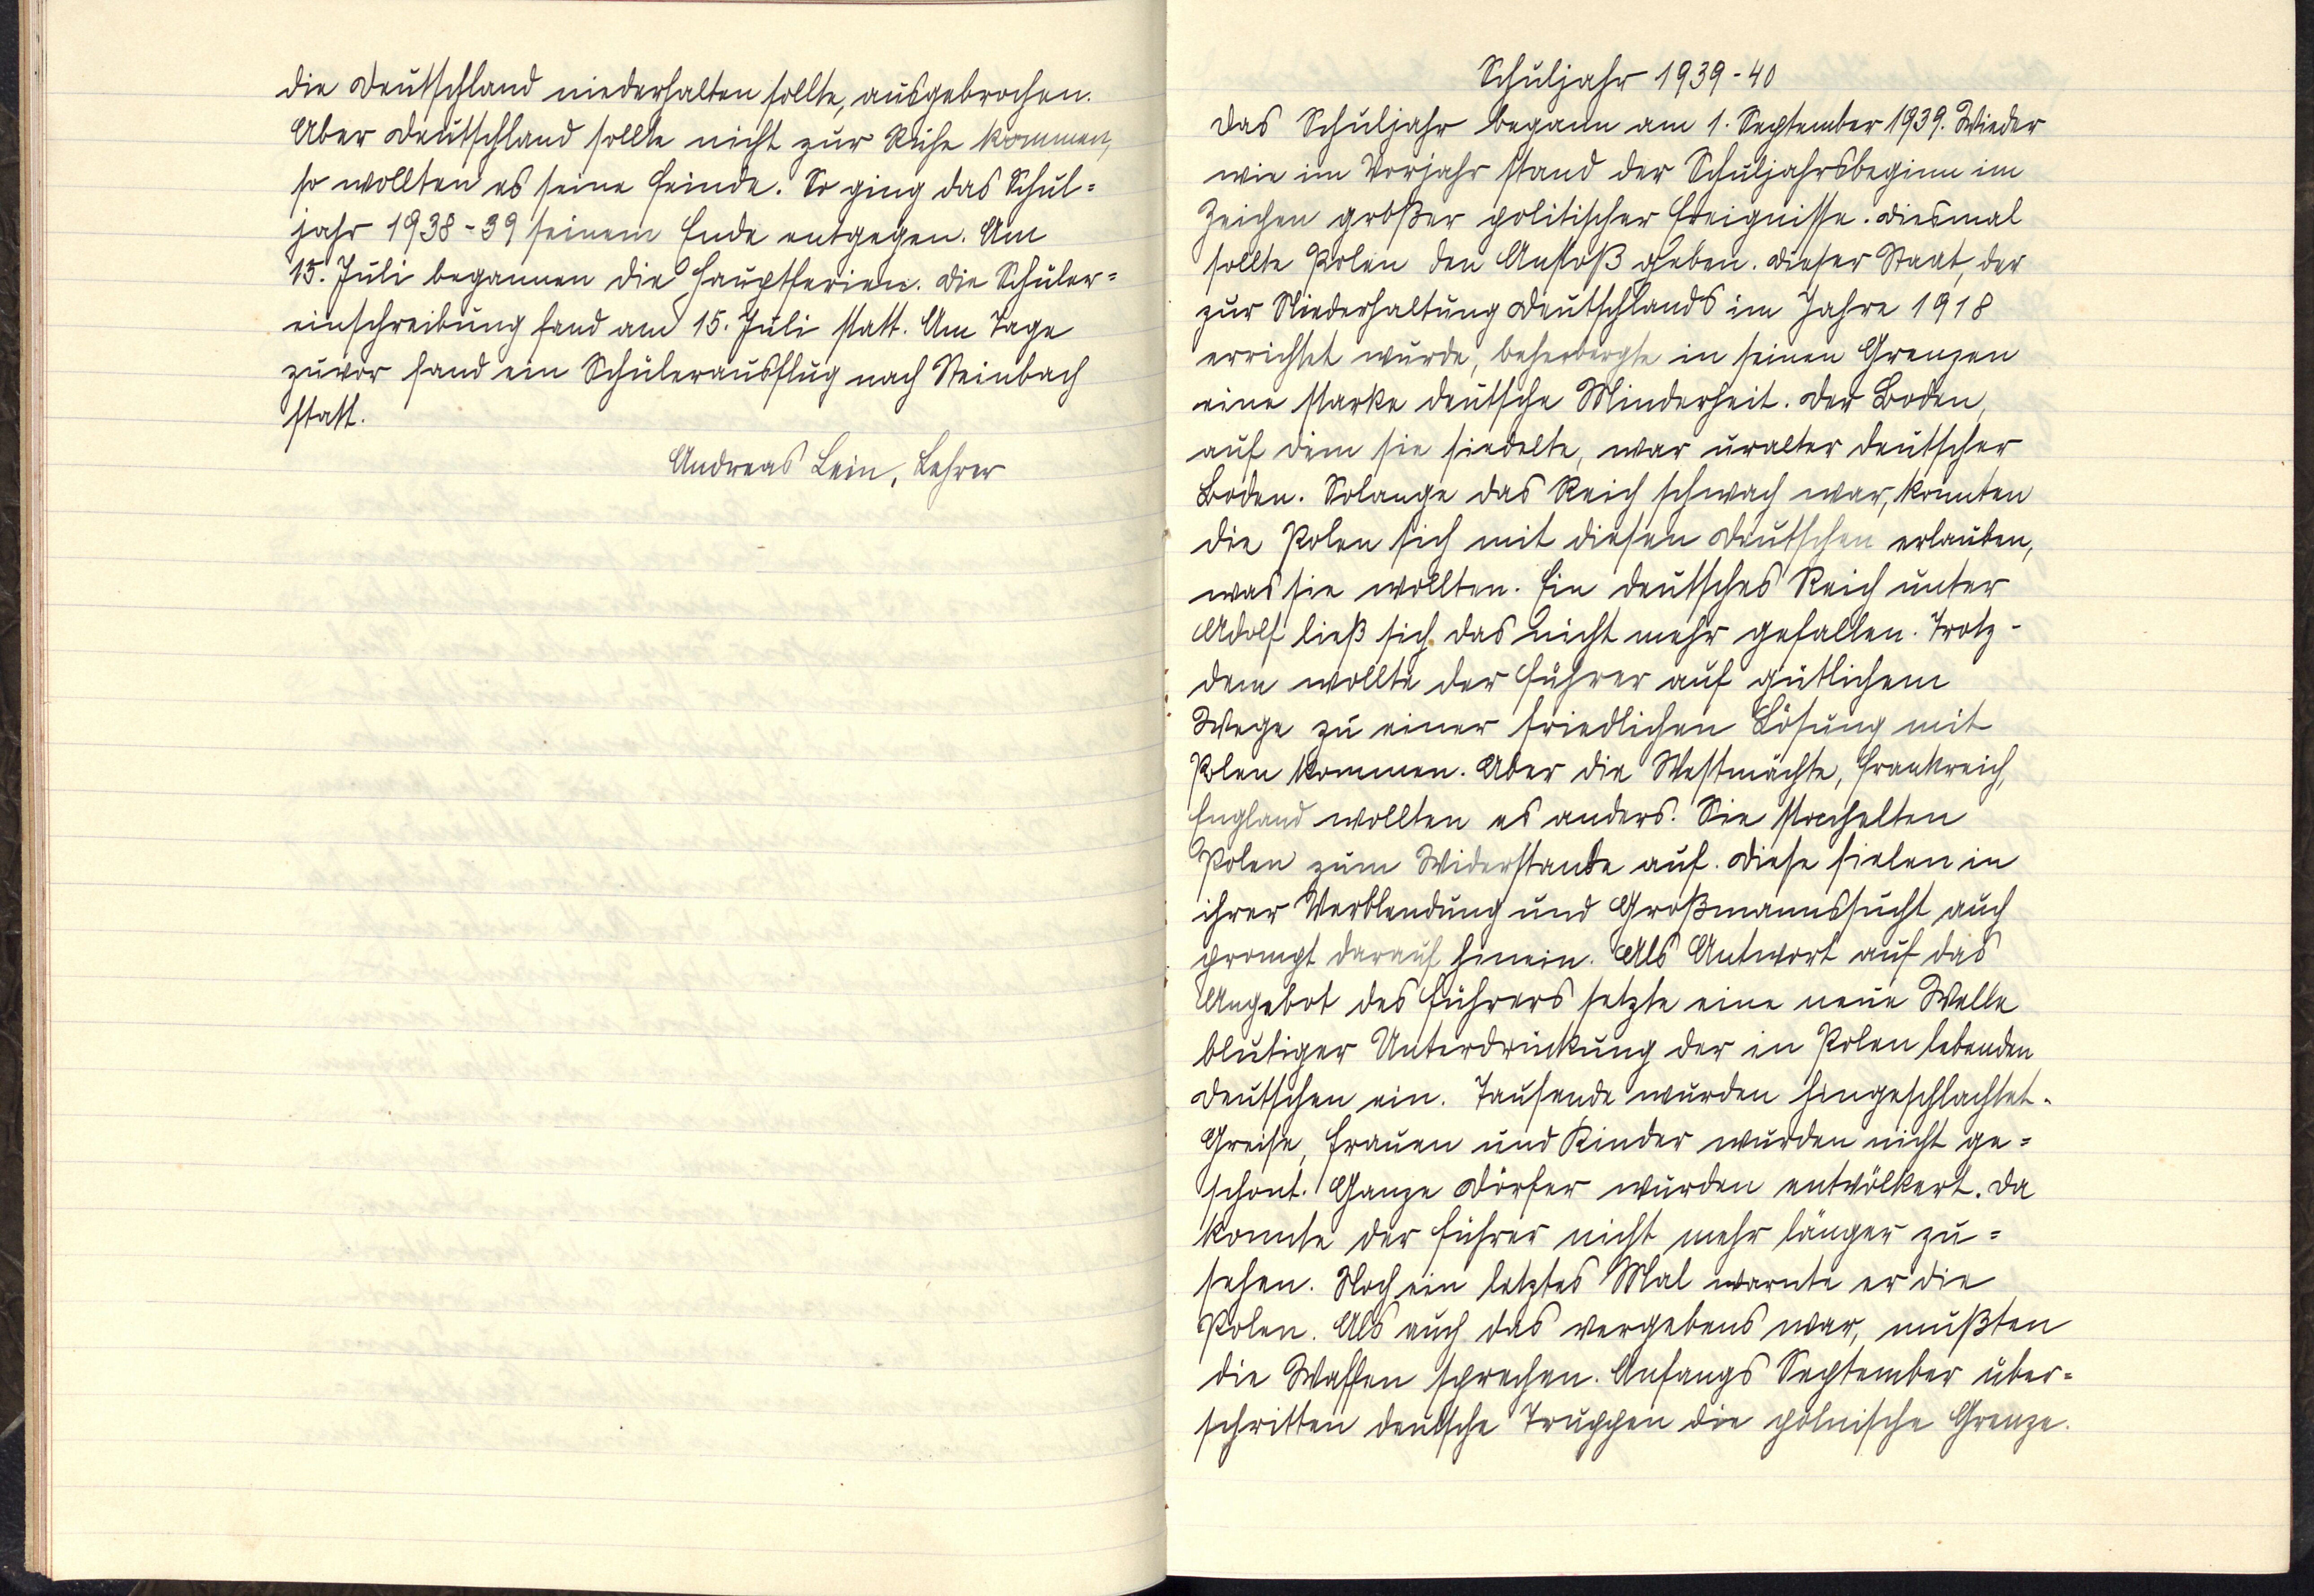 die Deutschland niederhalten sollte, ausgebrochen.
Aber Deutschland sollte nicht zur Ruhe kommen,
so wollten es seine Feinde. So ging das Schul=
jahr 1938-39 seinem Ende entgegen. Am
15. Juli begannen die Hauptferien. Die Schüler=
einschreibung fand am 15. Juli statt. Am Tage
zuvor fand ein Schülerausflug nach Steinbach
statt.
Andreas Lein, Lehrer
Schuljahr 1939-40
Das Schuljahr begann am 1. September 1939. Wieder
wie im Vorjahr stand der Schuljahrsbeginn im
Zeichen großer politischer Ereignisse. Diesmal
sollte Polen den Anstoß geben. Dieser Staat, der
zur Niederhaltung Deutschlands im Jahre 1918
errichtet wurde, beherbergte in seinen Grenzen
eine starke deutsche Minderheit. Der Boden,
auf dem sie siedelte, war uralter deutscher
Boden. Solange das Reich schwach war, konnten
die Polen sich mit diesen Deutschen erlauben,
was sie wollten. Ein deutsches Reich unter
Adolf ließ sich das nicht mehr gefallen. Trotz-
dem wollte der Führer auf gütlichem
Wege zu einer friedlichen Lösung mit
Polen kommen. Aber die Westmächte, Frankreich,
England wollten es anders. Sie stachelten
Polen zum Widerstande auf. Diese fielen in
ihrer Verblendung und Großmannssucht auch
prompt darauf hinein. Als Antwort auf das
Angebot des Führers setzte eine neue Welle
blutiger Unterdrückung der in Polen lebenden
Deutschen ein. Tausende wurden hingeschlachtet.
Greise, Frauen und Kinder wurden nicht ge=
schont. Ganze Dörfer wurden entvölkert. Da
konnte der Führer nicht mehr länger zu=
sehen. Noch ein letztes Mal warnte er die
Polen. Als auch das vergebens war, mußten
die Waffen sprechen. Anfangs September über=
schritten deutsche Truppen die polnische Grenze.